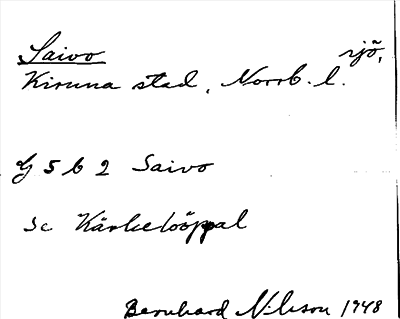 Saivo sjö,
Kiruna stad, Norrb. l.
G 5 b 2 Saivo
Sc Kärkelooppal
Bernhard Nilsson 1948